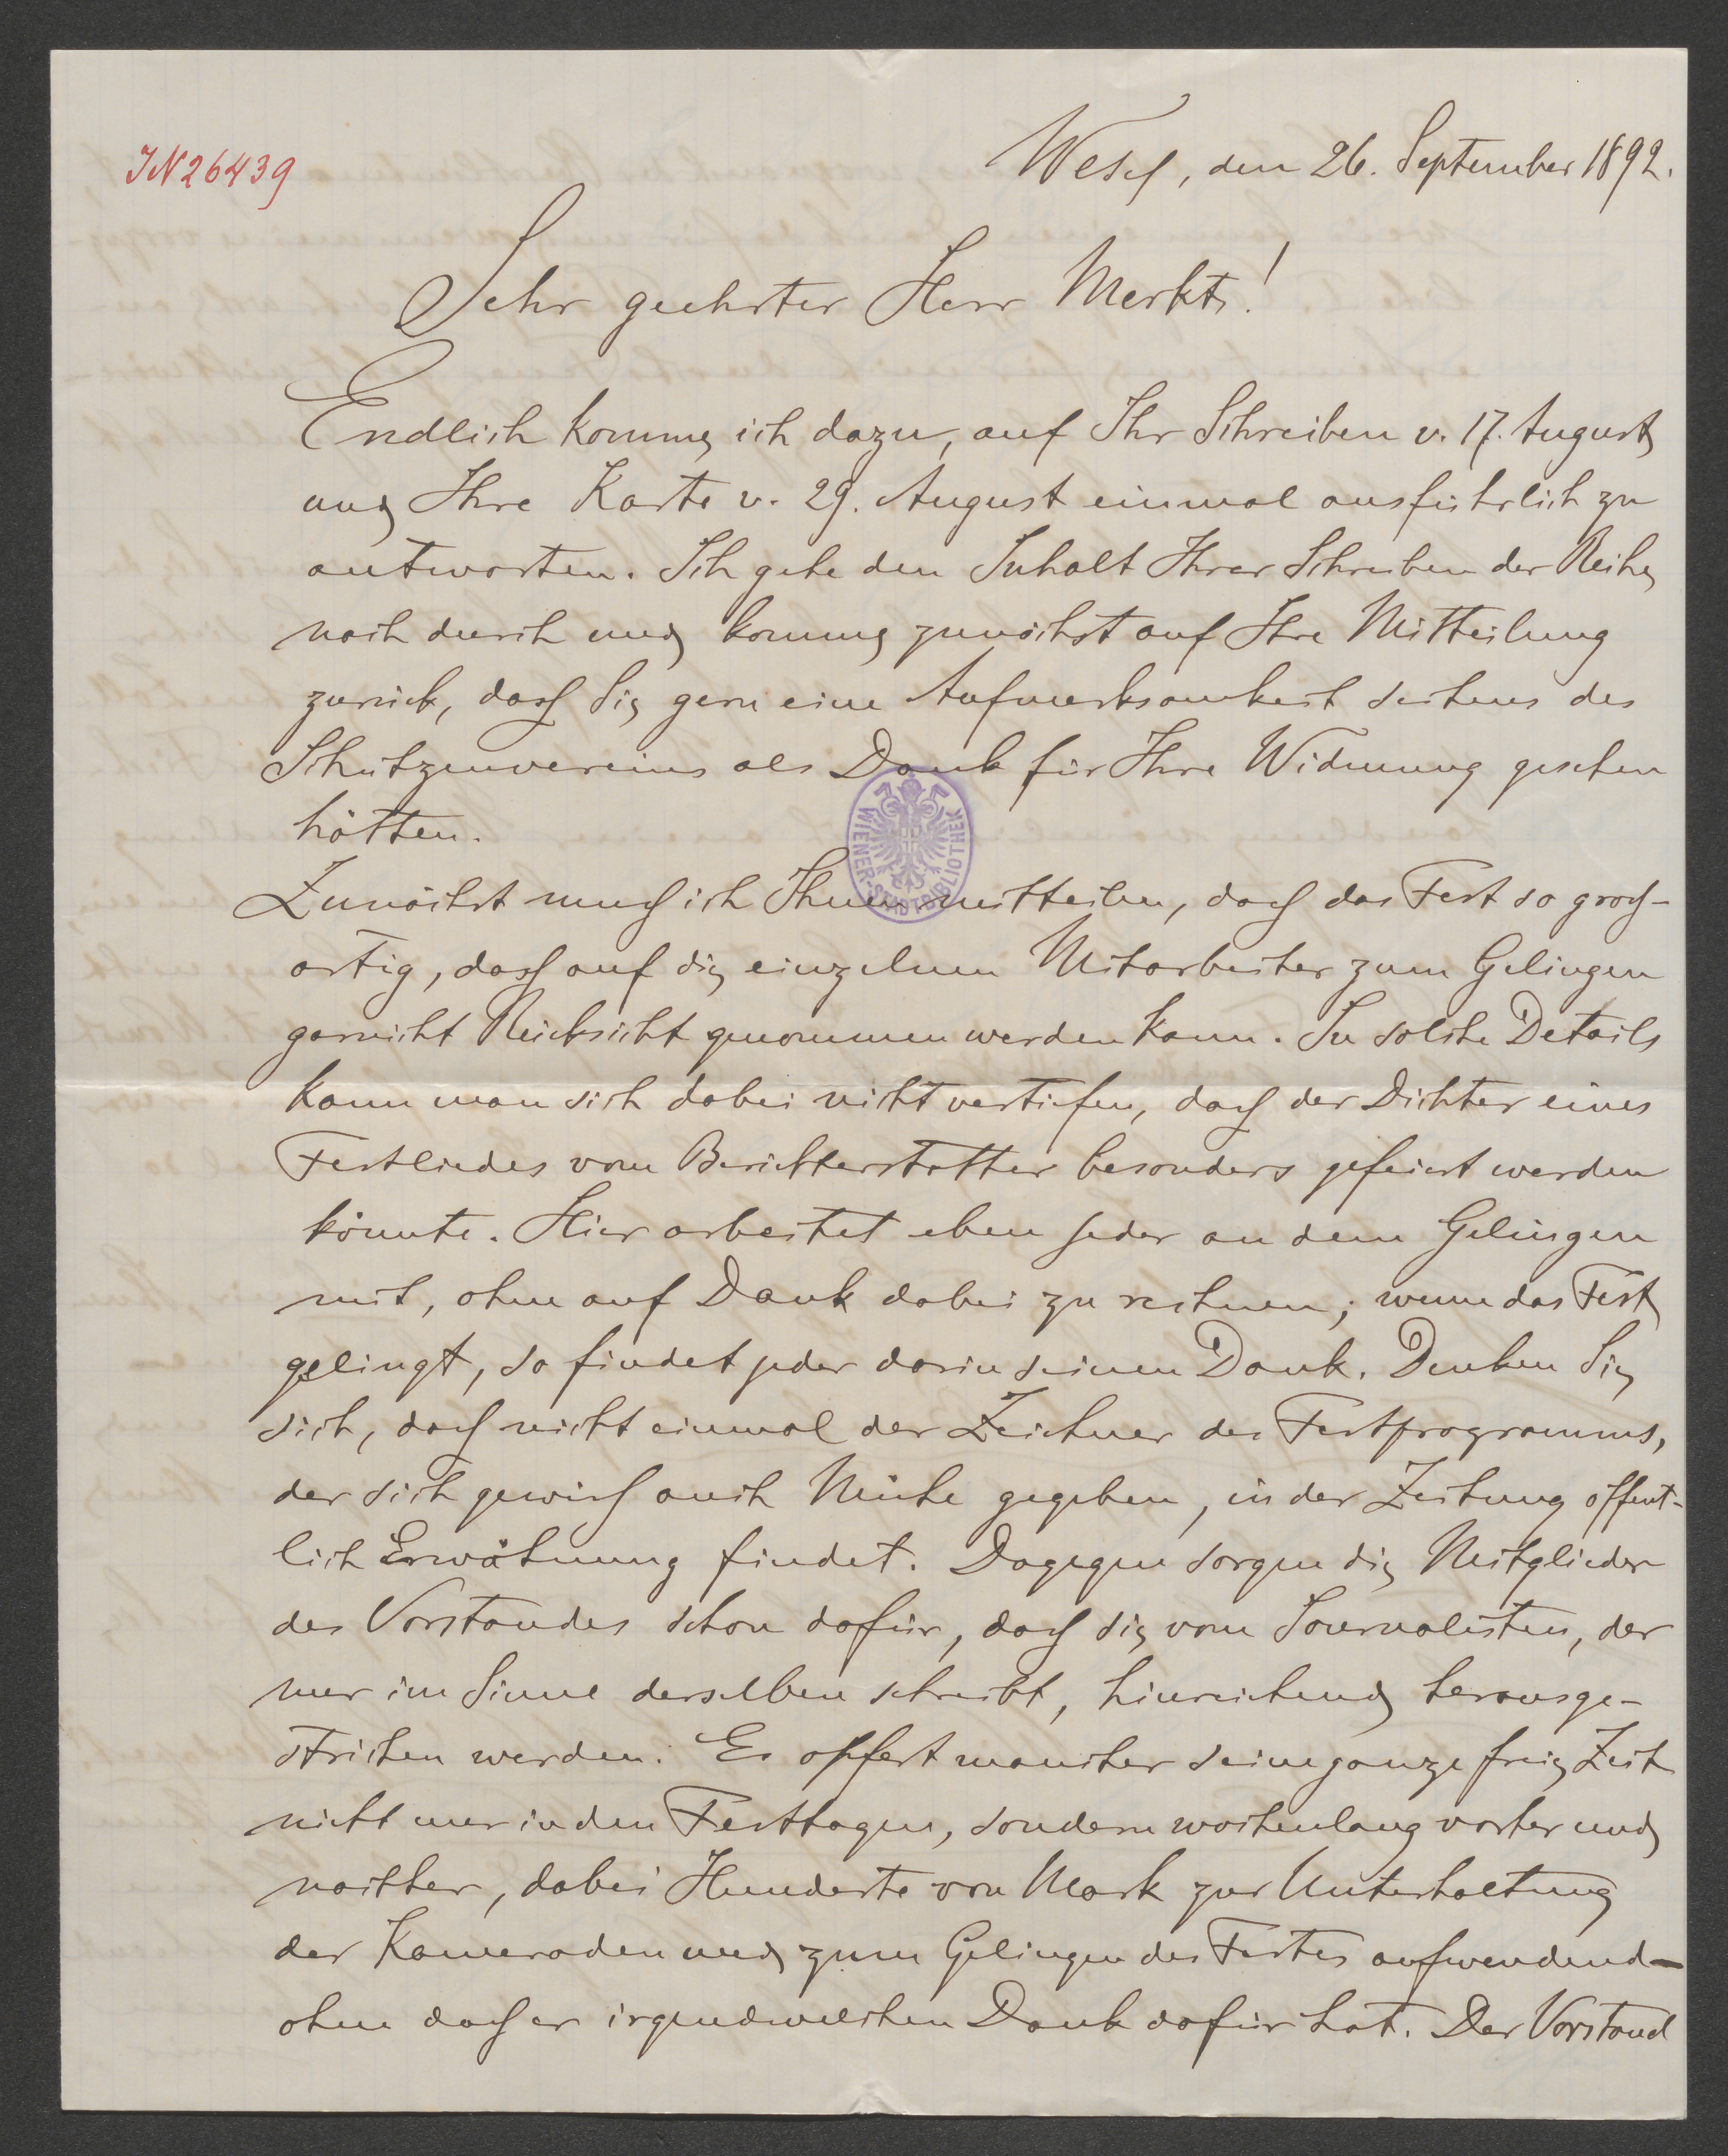 IN 26439
Wesel, den 26. September 1892.
Sehr geehrter Herr Merkt!
Endlich komme ich dazu, auf Ihr Schreiben v. 17. August
und Ihre Karte v. 29. August einmal ausführlich zu
antworten. Ich gehe den Inhalt Ihrer Schreiben der Reihe
nach durch und komme zunächst auf Ihre Mitteilung
zurück, dass Sie gern eine Aufmerksamkeit seitens des
Schützenvereins als Dank für Ihre Widmung gesehen
hätten.
WIENER-STADTBIBLIOTHEK
Zunächst muss ich Ihnen mitteilen, dass das Fest so gross-
artig, dass auf die einzelnen Mitarbeiter zum Gelingen
garnicht Rücksicht genommen werden kann. In solche Details
kann man sich dabei nicht vertiefen, dass der Dichter eines
Festliedes vom Berichterstatter besonders gefeiert werden
könnte. Hier arbeitet eben jeder an dem Gelingen
mit, ohne auf Dank dabei zu rechnen; wenn das Fest
gelingt, so findet jeder darin seinen Dank. Denken Sie
sich, dass nicht einmal der Zeichner des Festprogramms,
der sich gewiss auch Mühe gegeben, in der Zeitung öffent-
lich Erwähnung findet. Dagegen sorgen die Mitglieder
des Vorstandes schon dafür, dass sie vom Journalisten, der
nur im Sinne derselben schreibt, hinreichend herausge-
strichen werden. Es opfert mancher seine ganze freie Zeit
nicht nur in den Festtagen, sondern wochenlang vorher und
nachher, dabei Hunderte von Mark zur Unterhaltung
der Kameraden und zum Gelingen des Festes aufwendend -
ohne dass er irgendwelchen Dank dafür hat. Der Vorstand